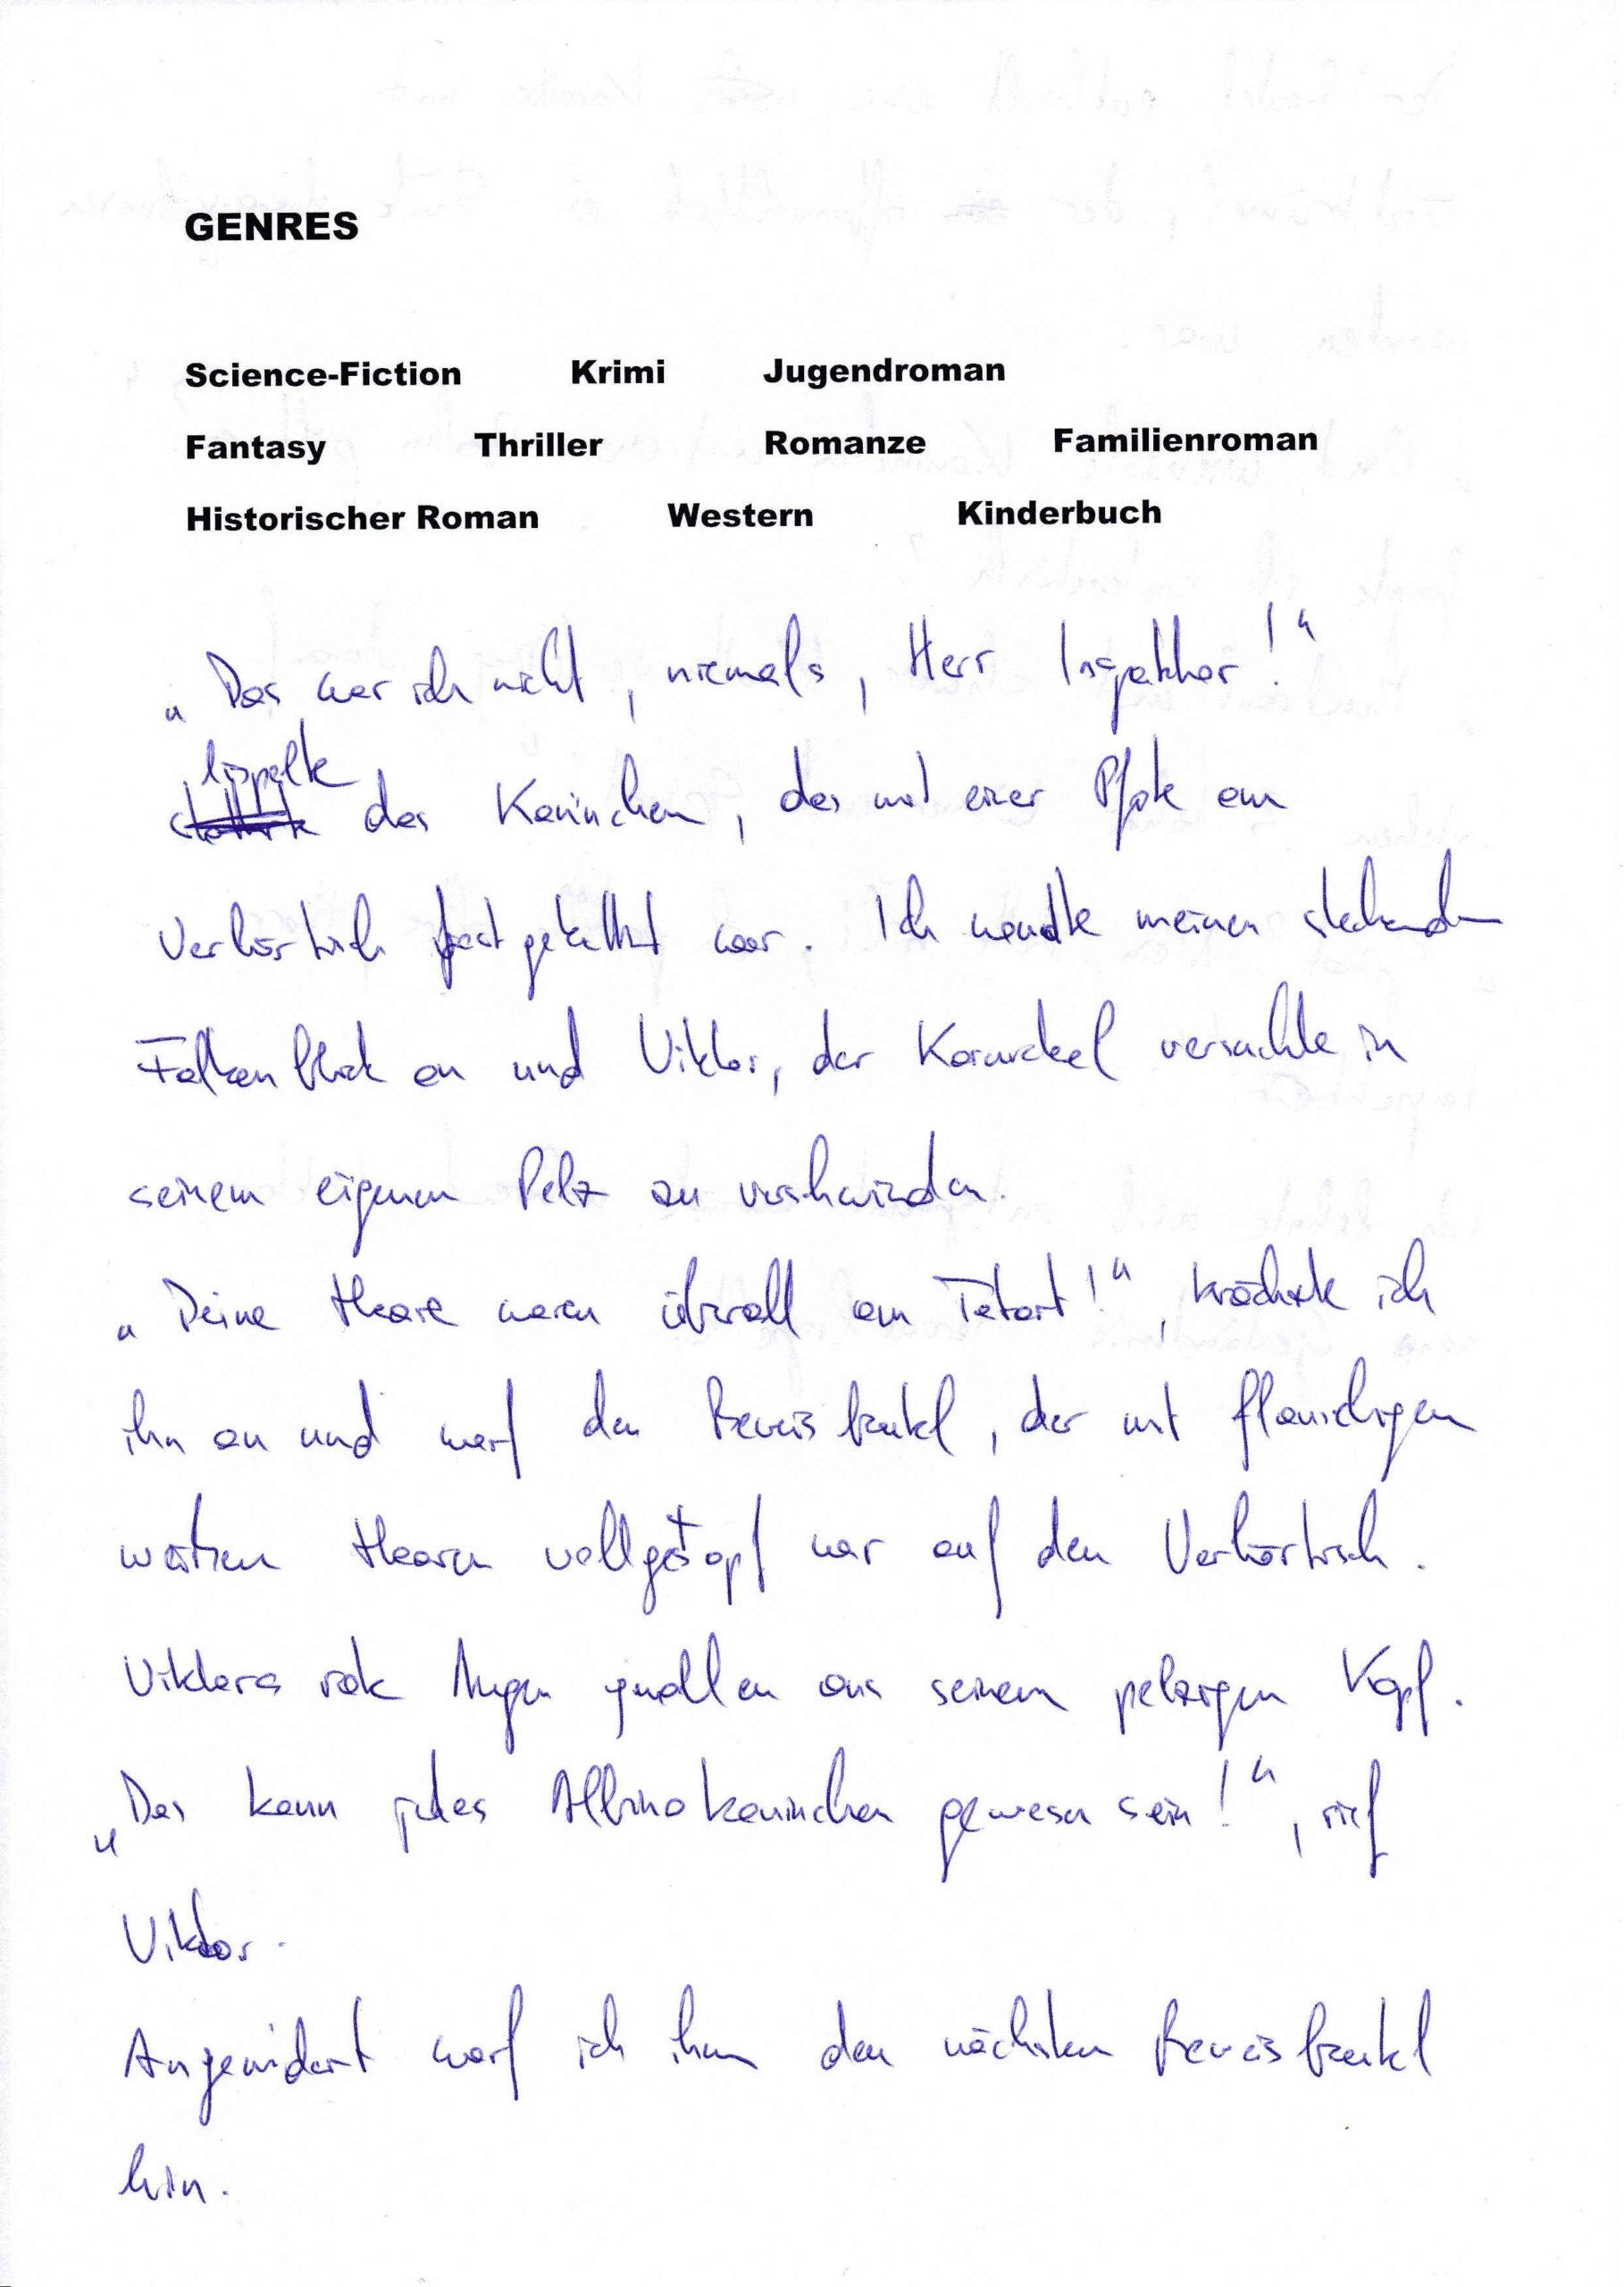 GENRES
Science-Fiction Krimi Jugendroman
Fantasy Thriller Romanze Familienroman
Historischer Roman Western Kinderbuch
„Das war ich nicht, niemals, Herr Inspektor!“
lispelte
das Kaninchen, das mit einer Pfote am
Verhörtisch festgekettet war. Ich wandte meinen stechenden
Falkenblick an und Viktor, der Karnickel versuchte in
seinem eigenen Pelz zu verschwinden.
„Deine Haare waren überall am Tatort!“, krächzte ich
ihn an und warf den Beweisbeutel, der mit flauschigen
weißen Haaren vollgestopf war auf den Verhörtisch.
Viktors rote Augen quollen aus seinem pelzigen Kopf.
„Das kann jedes Albinokaninchen gewesen sein!“, rief
Viktor.
Angewidert warf ich ihm den nächsten Beweisbeutel
hin.